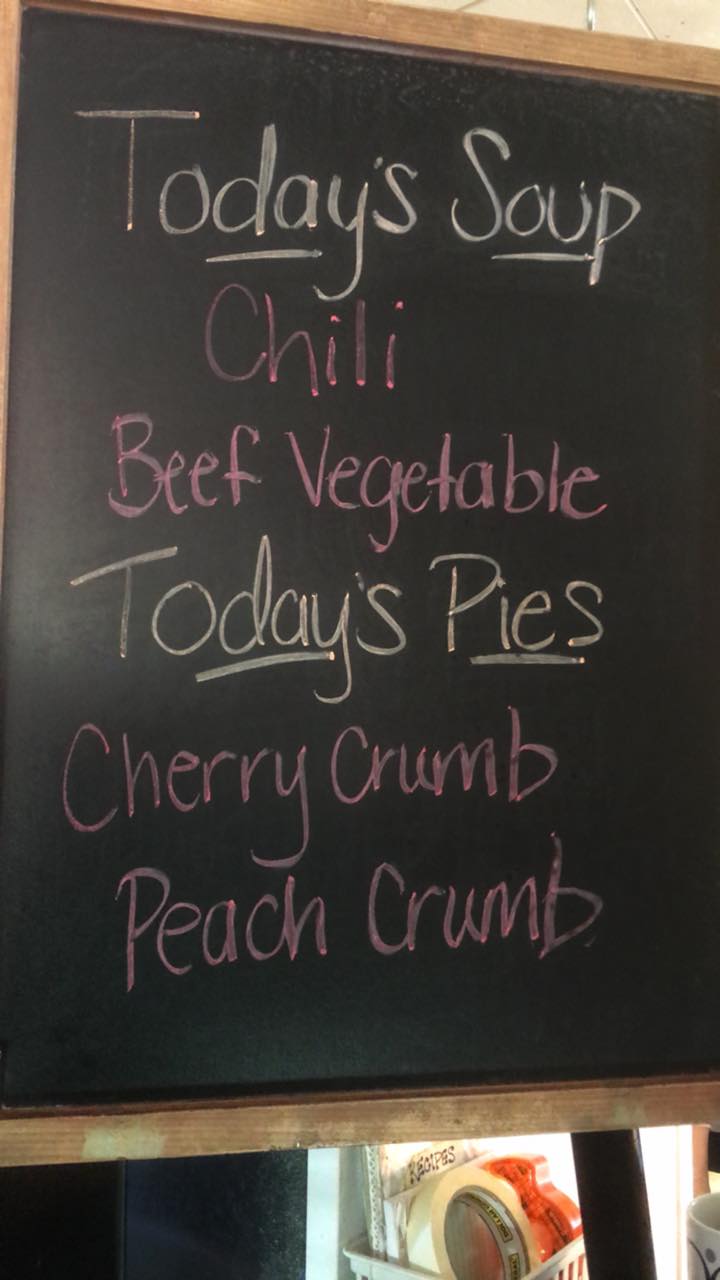 Today's Soup
Chili
Beef Vegetable
Today's Pies
Cherry Crumb
Peach Crumb
RECIPES